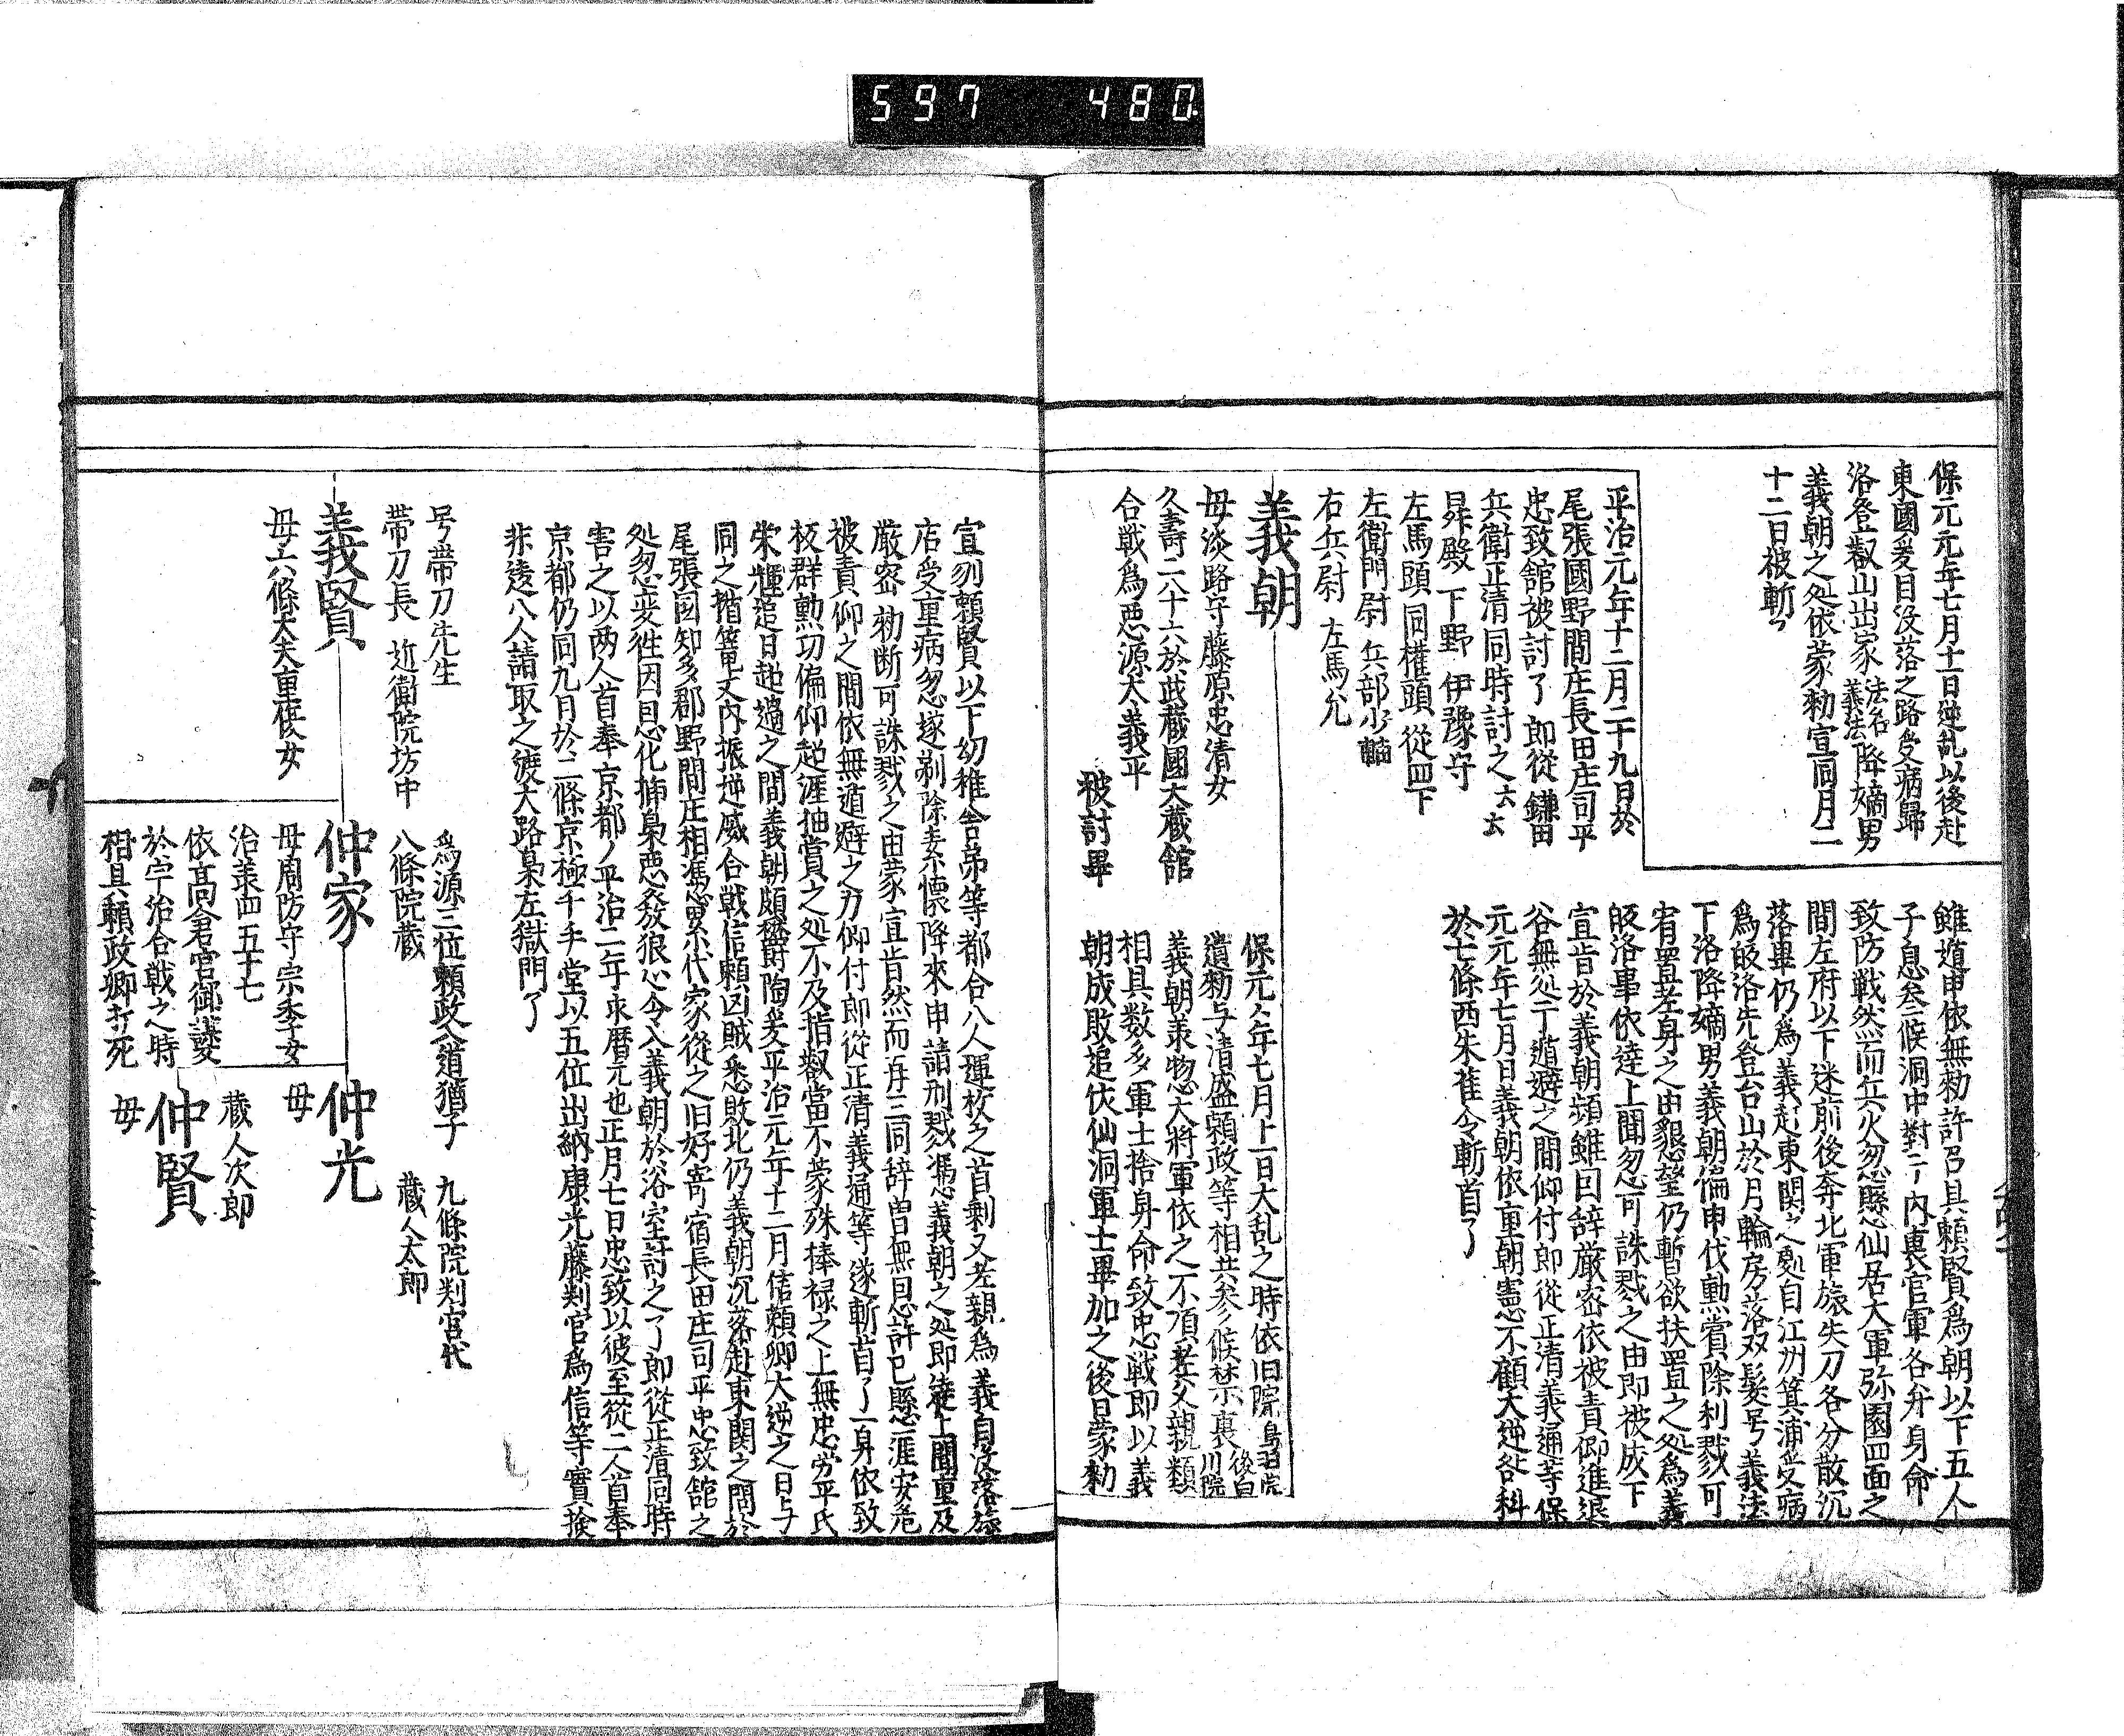 597 480
保元元年七月十一日逆乱以後赴
東國爰目没落之路受病歸
洛登叡山出家法名義法降嫡男
義朝之処依蒙勅宣同月二
十二日被斬了
雖遁申依無勅許召具頼賢為朝以下五人
子息参候洞中對于内裏官軍各弁身命
致防戦然而兵火忽懸仙居大軍弥圍四面之
間左府以下迷前後奔北軍旅失刀各分散沉
落畢仍為義赴東関之処自江州箕浦受病
為皈洛先登台山於月輪房落双髪号義法
下洛降嫡男義朝倫申伐勲賞除利戮可
宥置老身之由懇望仍暫欲扶置之処為義
皈洛事依達上聞忽可誅戮之由即被成下
宣旨於義朝頻雖回辞厳密依被責仰進退
谷無処于遁避之間仰付即從正清義通等保
元元年七月日義朝依重朝憲不顧大逆咎科
於七條西朱雀令斬首了
平治元年十二月二十九日於
尾張國野間庄長田庄司平
忠致舘被討了 即從鎌田
兵衛正清同時討之云云
昇殿 下野 伊豫守
左馬頭 同權頭 從四下
左衛門尉 兵部少輔
右兵尉 左馬允
義朝
母淡路守藤原忠清女
久壽二八十六於武蔵國大蔵舘
合戦為悪源太義平
被討畢
保元々年七月十一日大乱之時依旧院鳥羽院
遺勅与清盛頼政等相共参候禁裏後白川院
義朝承惣大将軍依之不順老父親類
相具数多軍士捨身命致忠戦即以義
朝成敗追伐仙洞軍士畢加之後日蒙勅
宣刎頼賢以下幼稚舎弟等都合八人運枚之首剰又老親為義自没落旅
店受重病忽遂剃除素懐降來申請刑戮馮義朝之処即達上聞重及
厳密勅断可誅戮之由蒙宣旨然而再三同辞曽無恩許已懸涯安危
被責仰之間依無遁避之刀仰付即從正清義通等遂斬首了一身依致
抜群勲功偏仰超涯抽賞之処不及指叡當不蒙殊棒禄之上無忠労平氏
栄耀追日赴過之間義朝頗欝陶爰平治元年十二月信頼卿大逆之日与
同之楯篭丈内振逆威合戦信頼凶賊悉敗北仍義朝沉落赴東関之間於
尾張國知多郡野間庄相馮累代家從之旧好寄宿長田庄司平忠致舘之
処忽変徃因恩化挿梟悪發狼心令入義朝於浴室討之了即從正清同時
害之以两人首奉京都ノ平治二年永暦元也正月七日忠致以彼至從二人首奉
京都仍同九日於二條京極千手堂以五位出納康光藤判官為信等實撿
非違八人請取之渡大路梟左獄門了
号帯刀先生
帯刀長 近衛院坊中
義賢
母六條大夫重俊女
為源三位頼政入道猶子
八條院蔵
仲家
母周防守宗季女
治承四五十七
依髙倉宮御謀変
於宇治合戦之時
相具頼政卿打死
九條院判官代
蔵人太郎
仲光
母
蔵人次郎
仲賢
母